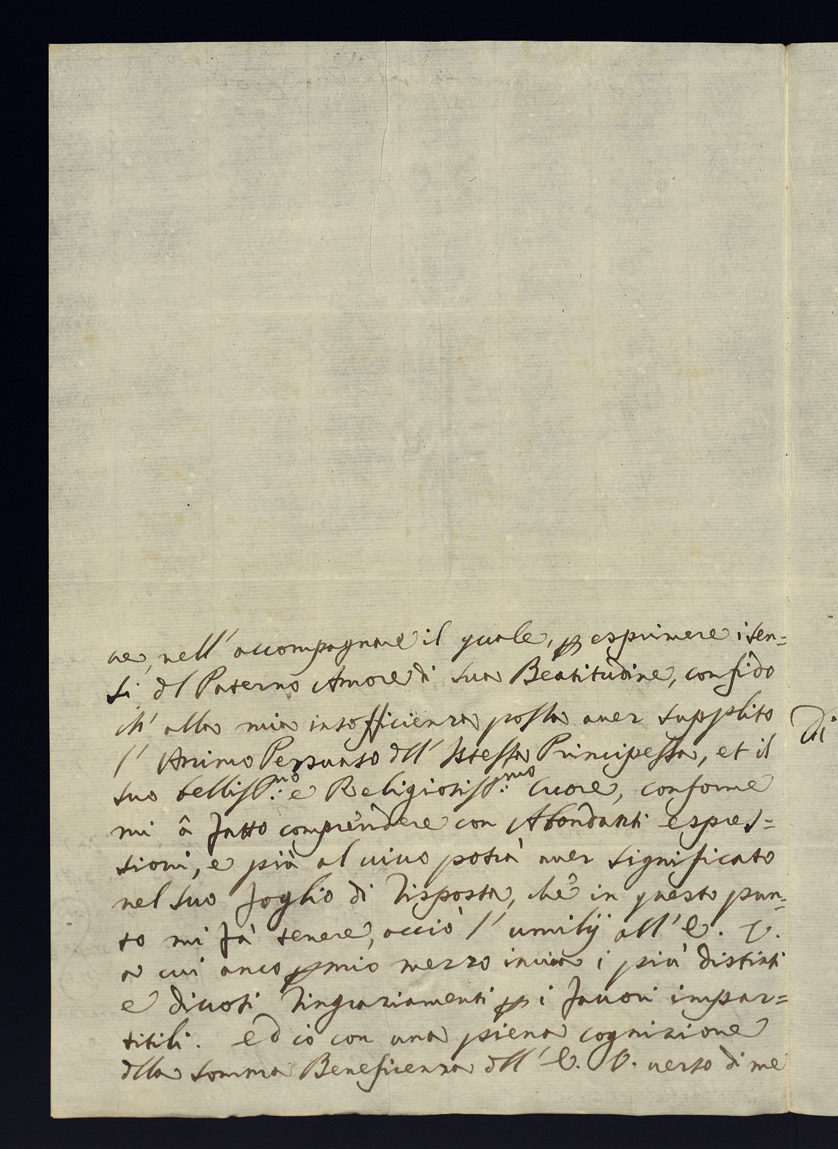 re, nell' accompagnare il quale, p esprimere i sen=
si dl Paterno Amore di Sua Beatitudine, confido
ch' alla mia insofficienza possa aver supplito
l' Animo Persuaso dll' Istessa Principessa, et il
suo belliss:mo e Religiosiss:mo Cuore, conforme
mi â fatto comprendere con Abondanti espres=
sioni, e più al vivo potrà aver significato
nel suo foglio di risposta, che in questo pun=
to mi fà tenere, acciò l' umilij all' E. V.
a cui anco p mio mezzo invia i più distinti
e divoti ringraziamenti p i favori impar=
titili. ed io con una piena cognizione
dlla somma Beneficenza dll' E. V. verso di me
Di